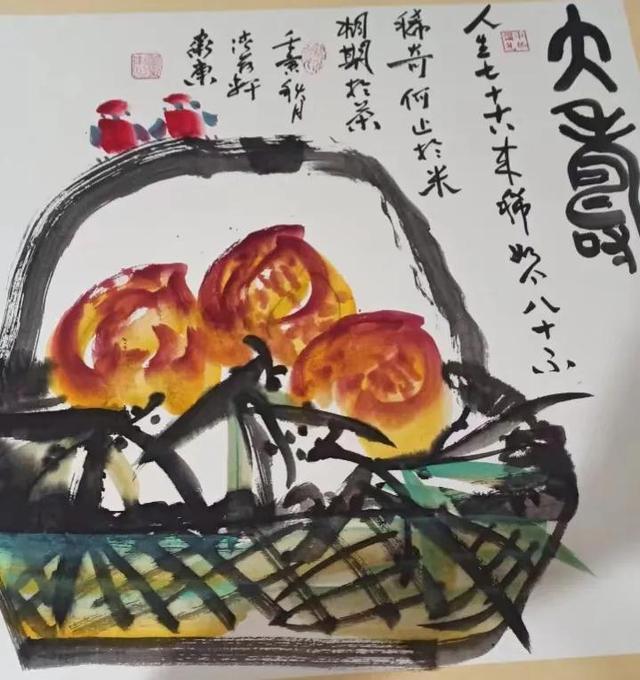 大寿
人生七十古来稀如今八十不
稀奇何止於米
相期於茶
壬寅秋月
轩